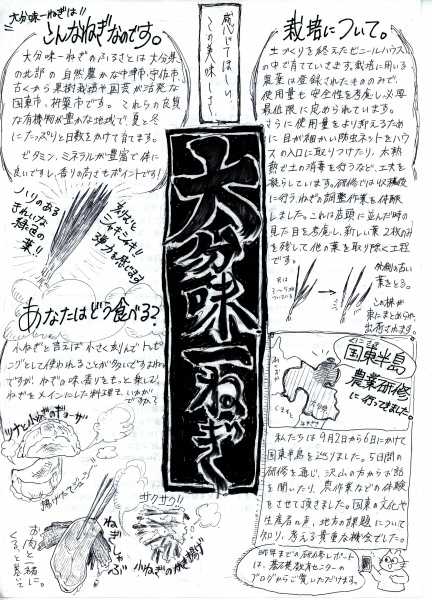 感じてほしい
この美味しさ
大分味一ねぎ
大分味一ねぎは!!
こんなねぎなのです。
大分味一ねぎのふるさとは大分県
の北部の自然豊かな中津市、宇佐市、
古くから果樹栽培や国東が活発な
国東市、杵築市です。これらの良質
な有機物が豊かな地域で、夏と冬
にたっぷりと日数をかけて育てます。
ビタミン、ミネラルが豊富で体に
良いですし、香りの高さもポイントです!
ハリのある
きれいな
緑色の
葉!!
シャキシャキ!!
弾力を感じます
あなたはどう食べる?
小ねぎと言えば小さく刻んでトッピ
ングとして使われることが多いですよね
ですが、ねぎの味、香りをもっと楽しむ、
ねぎをメインにした料理も、いかが
ですか?
ツナと小ねぎのギョーザ
揚げたてジューシー!
サクサク!!
小ねぎのかき揚げ
ねぎしゃぶ
お肉と一緒に。
くるっと巻いて
栽培について。
土づくりを終えたビニールハウス
の中で育てていきます。栽培に用いる
農薬は登録されたもののみで、
使用量も安全性を考慮し必要
最低限に定められています。
さらに使用量をより抑えるため
に目が細かい防虫ネットをハウス
の入口に取りつけたり、太陽
熱で土の消毒を行うなど、工夫を
凝らしています。研修では収穫後
に行う、ねぎの調整作業を体験
しました。これは店頭に並んだ時の
見た目を考慮し、新しい葉2枚のみ
を残して他の葉を取り除く工程
です。
外側の古い
葉をとる。
この様が
束にまとめられ
出荷されます。
くにさき
国東半島
農業研修
に行ってきました。
私たちは9月2日から6日にかけて
国東半島を巡りました。5日間の
研修を通じ、沢山の方からお話
を聞いたり、農作業などの体験
をさせて頂きました。国東の文化や
生産者の声、地方の課題について
知り、考える貴重な機会でした。
昨年までの研修レポート
は、基礎教育センターの
ブログからご覧いただけます。